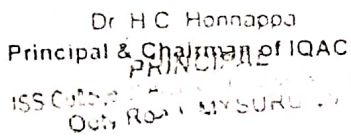 Dr H C Honnappa
Principal & Chairman of IQAC
PRINCIPAL
Ooty Road MYSURU